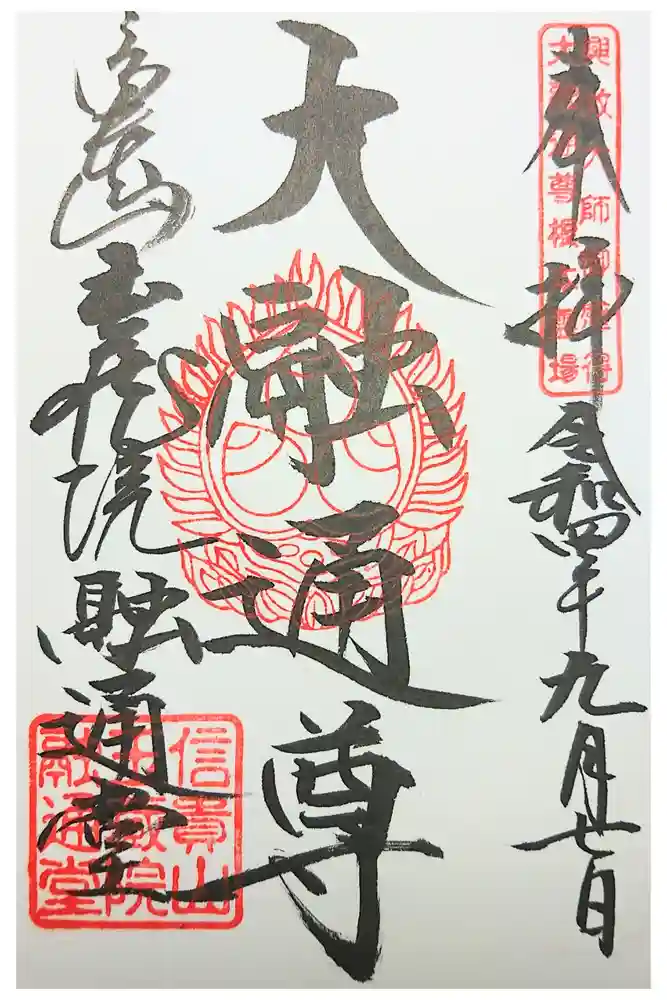 奉拝
令和四年九月七日
興教大師御感得
大融通尊根本霊場
大融通尊
信貴山
玉蔵院
融通堂
信貴山
玉蔵院
融通堂